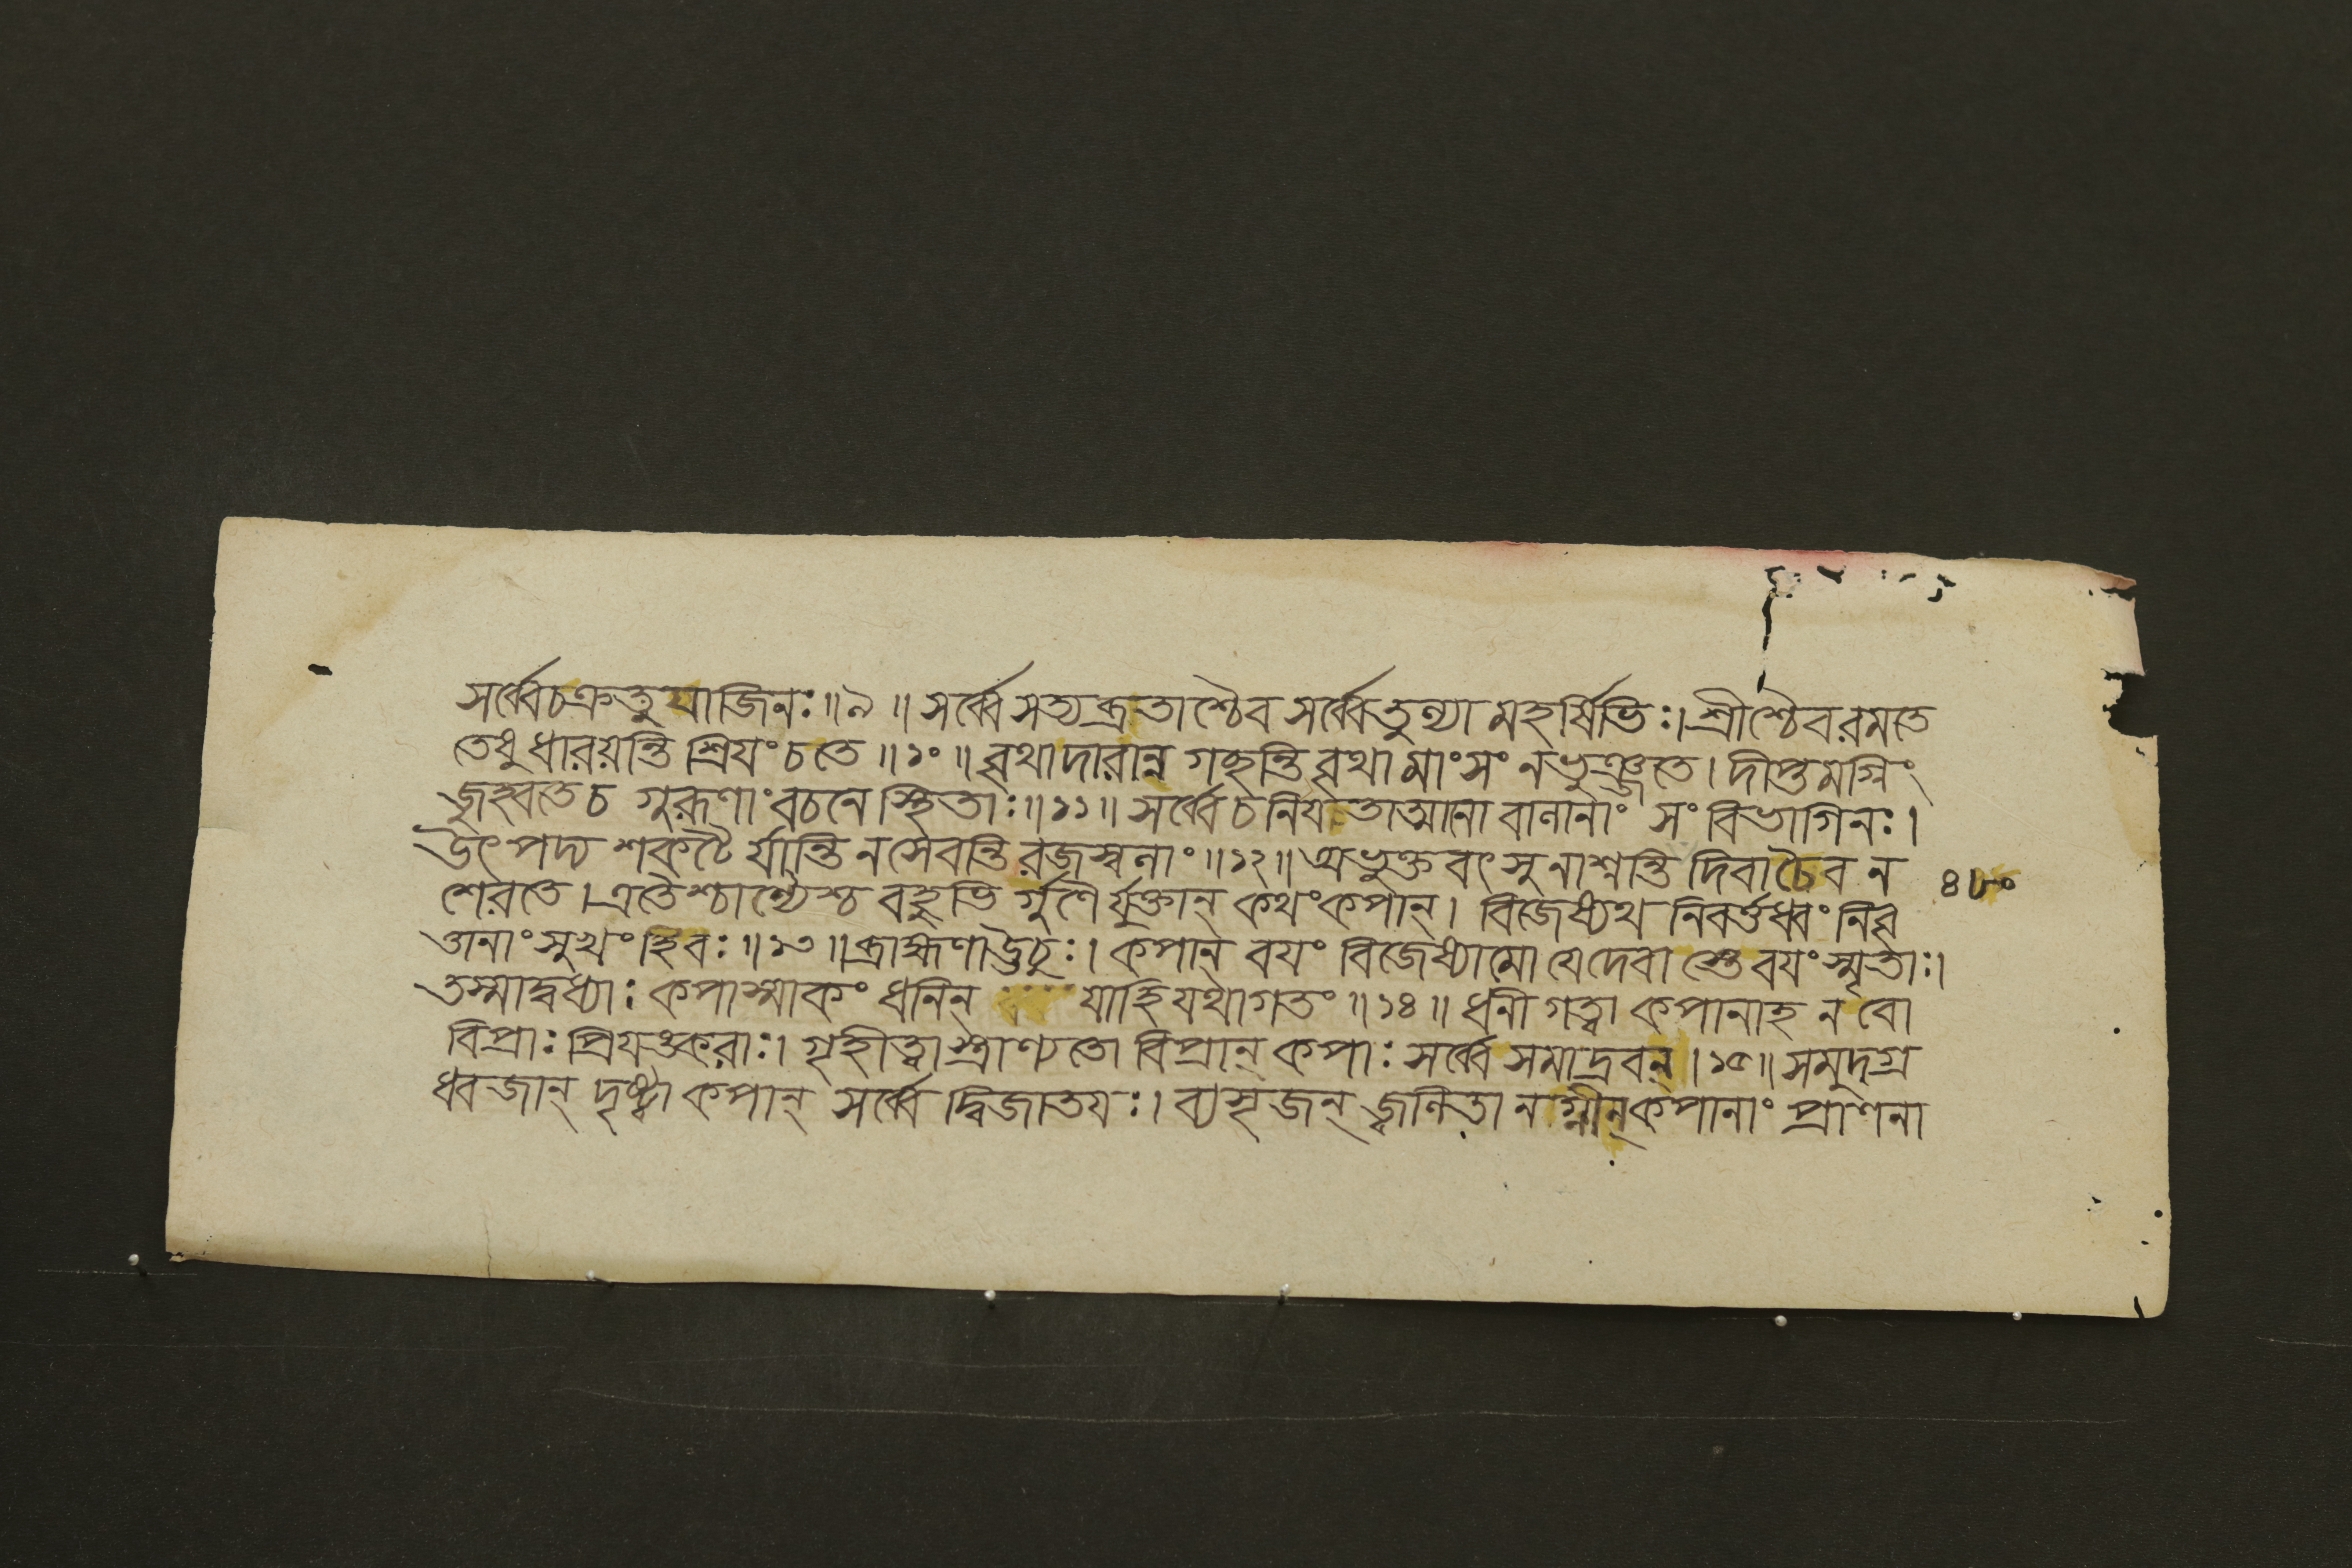 সর্ব্বেচক্রতুযাজিনঃ॥৯॥সর্ব্বেসত্যব্রতাশ্চৈবসর্ব্বেতুল্যামহর্ষিভিঃ।শ্রীশ্চৈবরমতে
তেষুধারয়ন্তিশ্রিযংচতে॥১০॥বৃথাদারান্নগচ্ছন্তিবৃথামাংসংনভুঞ্জতে।দীপ্তমগ্নিং
জুহ্বতেচগুরূণাংবচনেস্থিতাঃ॥১১॥সর্ব্বেচনিযতাত্মানোবালানাংসংবিভাগিনঃ।
উৎপদ্যশকটৈর্যান্তিনসেবন্তিরজস্বলাং॥১২॥অভুক্তবৎসুনাশ্নন্তিদিবাচৈবন
শেরতে।এতৈশ্চান্যৈশ্চবহুভির্গুণৈর্যুক্তান্কথংকপান্।বিজেষ্যথনিবর্ত্তধ্বংনিবৃ
ত্তানাংসুখংহিবঃ॥১৩॥ব্রাহ্মণাঊচুঃ।কপান্বযংবিজেষ্যামোযেদেবাস্তেবযংস্মৃতাঃ।
তস্মাদ্বধ্যাঃকপাস্মাকংধনিন্ যাহিযথাগতং॥১৪॥ধনীগত্বাকপানাহনবো
বিপ্রাঃপ্রিযঙ্করাঃ।গৃহীত্বাস্ত্রাণ্যতোবিপ্রান্কপাঃসর্ব্বেসমাদ্রবন্।১৫॥সমুদগ্র
ধ্বজান্দৃষ্ট্বাকপান্সর্ব্বেদ্বিজাতযঃ।ব্যসৃজন্জ্বলিতানগ্নীন্কপানাংপ্রাণনা
৪৮০